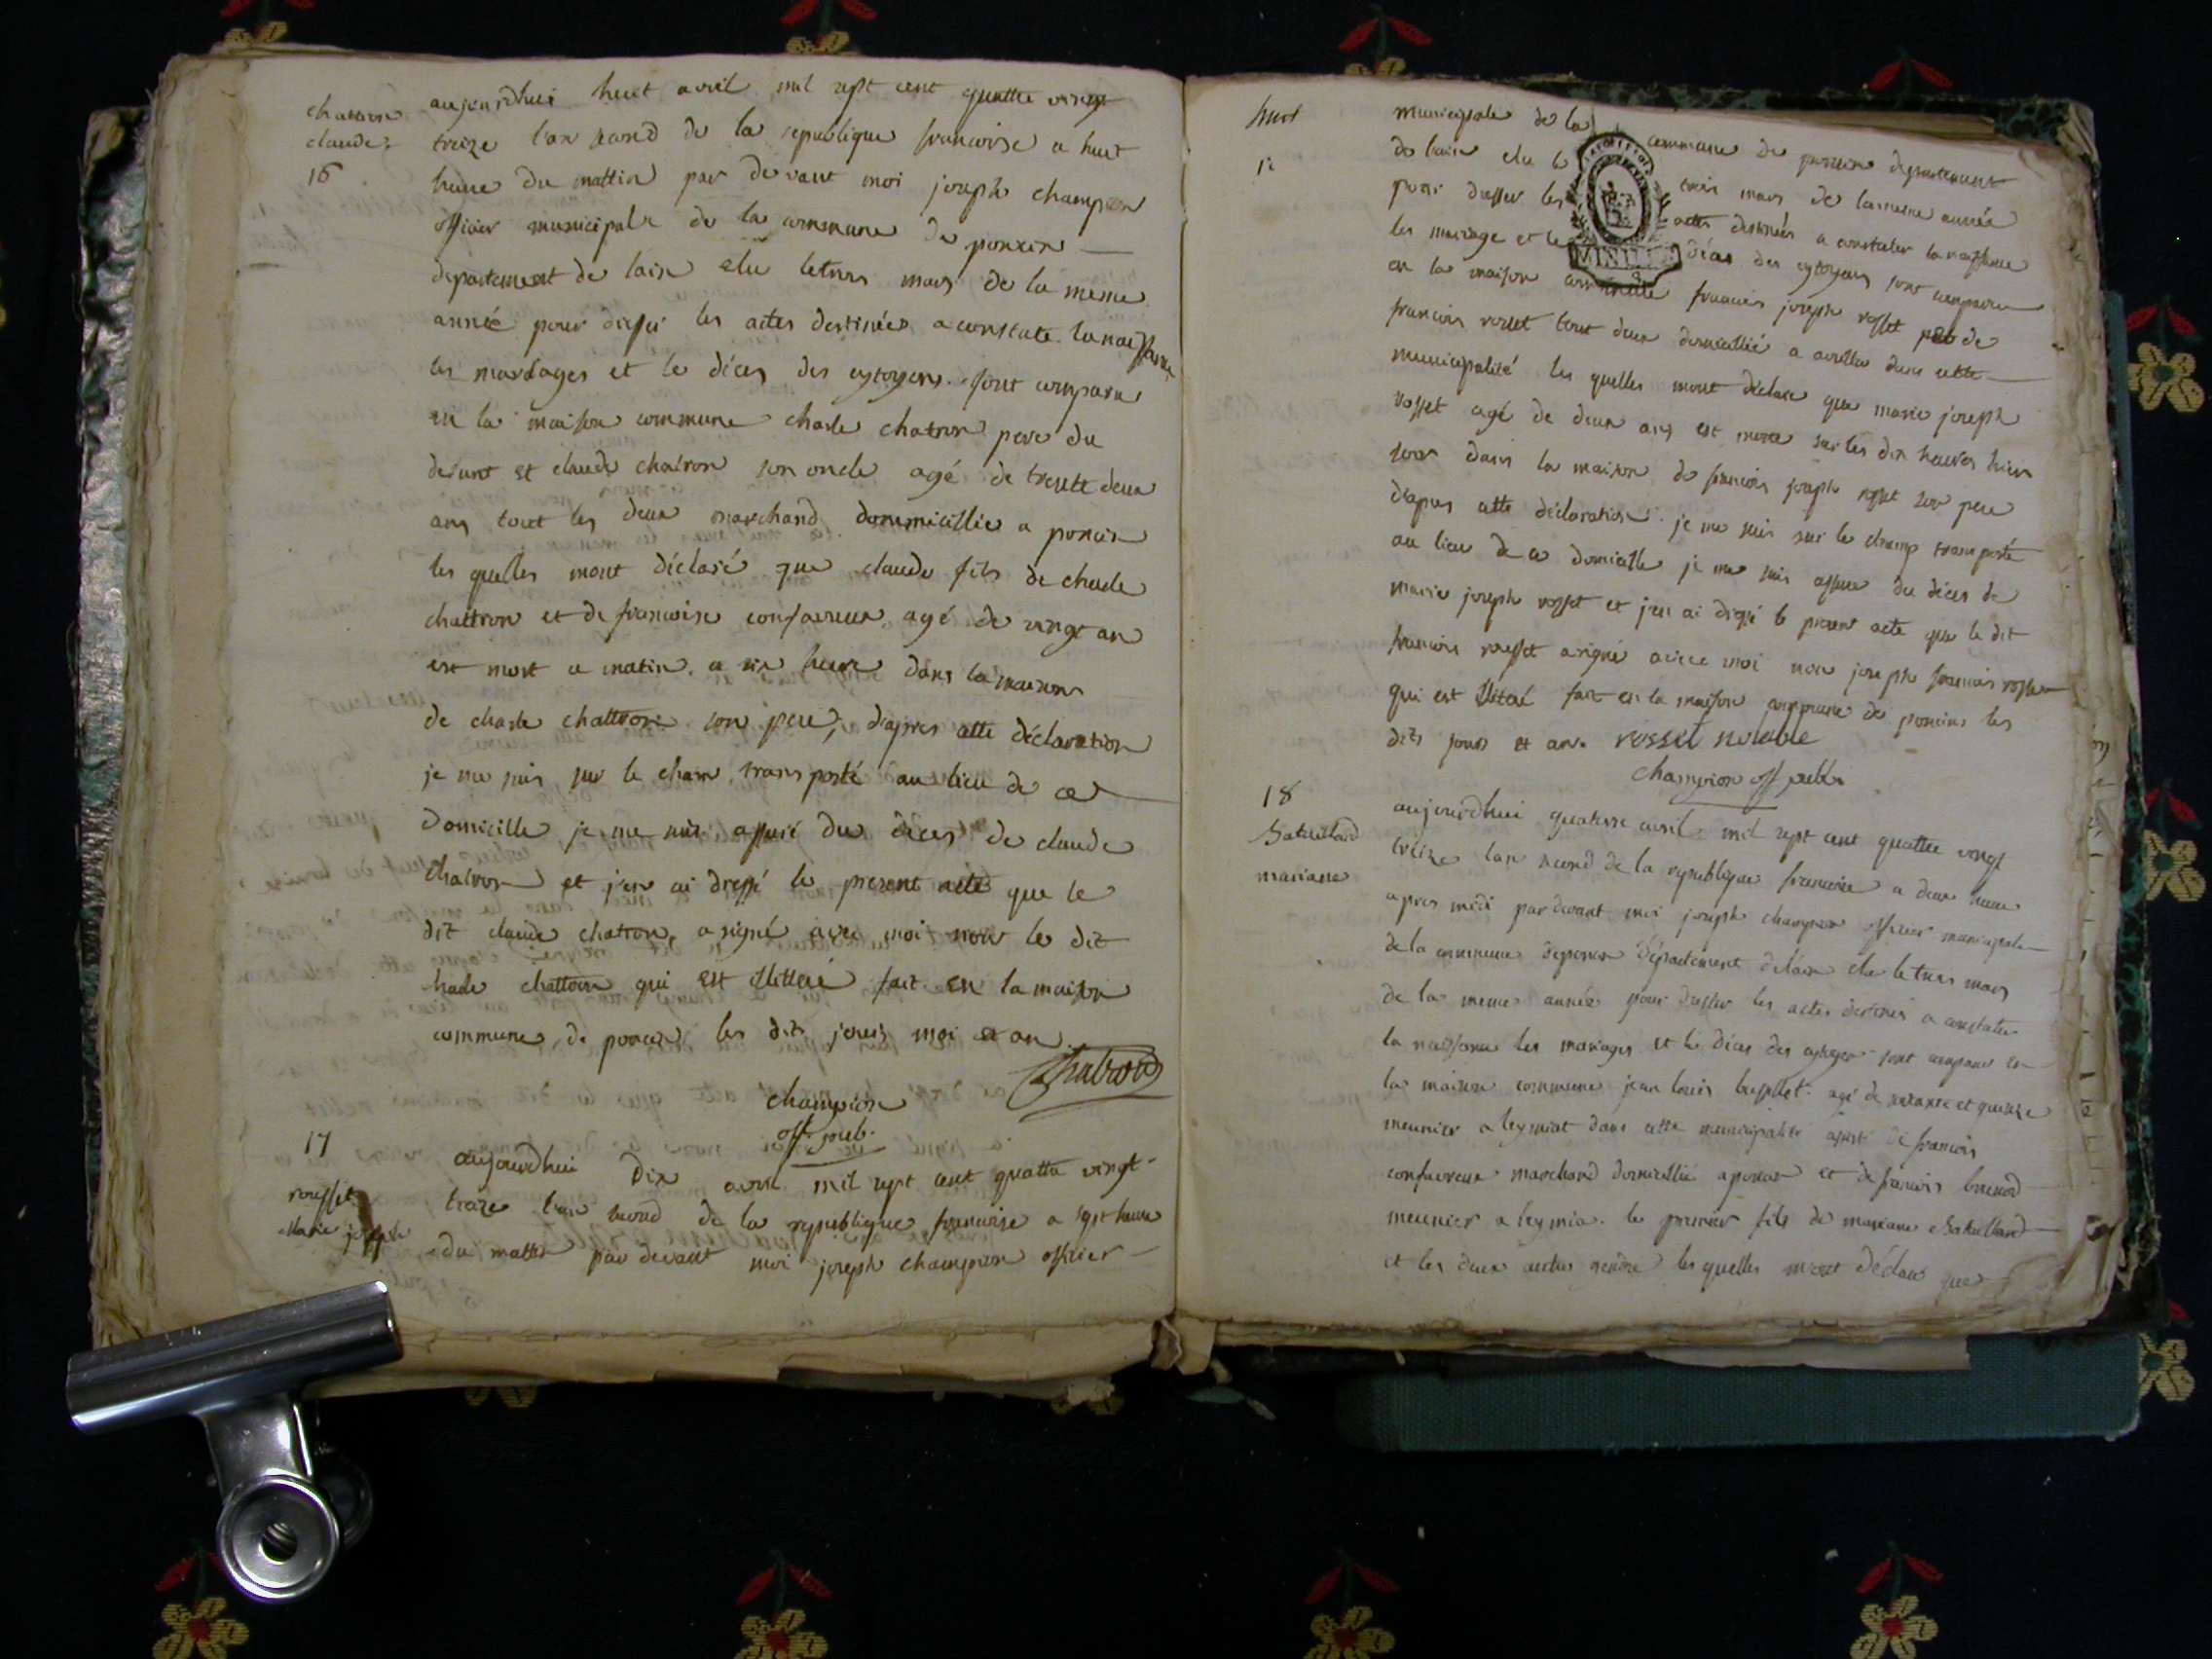 chattron
claude
16
aujourdhui huit avril mil sept cent quattre vingt
treize l'an second de la republique francoise a huit
heure du mattin par devant moi joseph champion
officier municipale de la commune de poncin
departement de lain elu le trois mars de la meme
année pour dressé les actes destinées a constate la naissance
les mariages et le déces des cytoyens sont comparu
en la maison commune charle chatron pere du
defunt et claude chatron son oncle agé de trente deux
ans tout les deux marchand dommicillié a poncin
les quelles mont déclaré que claude fils de charle
chattron et de francoise confavreux agé de vingt an
est mort ce matin a six heure dans la maison
de charle chattron son pere, d'apres cette déclaration
je me suis sur le cham transporté au lieu de ce
domicille je me suis assuré du déces de claude
chatron et j'en ai dressé le present acte que le
dit claude chatron, a signé avec moi non le dit
charle chattron qui est illitteré fait en la maison
commune de poncin les dit jours moi et an
Chatron
champion
off. pub.
17
rousset
marie joseph
aujourdhui dix avril mil sept cent quattre vingt
treize l'an second de la republique francoise a sept heure
du mattin par devant moi joseph champion officier
huit
municipale de la commune de poncin departement
de lain elu le trois mars de la meme année
pour dresser les actes destinées a constater la naissance
les mariage et le déces des cytoyens sont comparu
en la maison commune francois joseph rosset pere de
francois rosset tout deux domicillié a dans cette
municipalité les quelles mont déclare que marie joseph
rosset agé de deux ans est morte sur les dix heures hier
soir dans la maison de francois joseph rosset son pere
dapres cette déclaration je me suis sur le champ transporté
au lieu de ce domicille je me suis assure du déces de
marie joseph rosset et j'en ai dressé le present acte que le dit
francois rousset a signé avec moi non joseph francois rosset
qui est illitéré fait en la maison commune de poncins les
dits jours et an. rosset notable
champion off public
18
Batailliard
mariane
aujourdhui quatorse avril mil sept cent quattre vingt
treize lan second de la republique francoise a deux heure
apres midi par devant moi joseph champion officier municipale
de la commune deponcin département delain elu le trois mars
de la meme année pour dresser les actes destinés a constater
la naissance les mariages et le déces des cytoyens sont comparu en
la maison commune jean louis agé de et quinze
meunier a leymiat dans cette municipalité de francois
confavreux marchand domicillié a poncin et de francois
meunier a leymia. le premier fils de mariane Batailliard
et les deux autres gendre les quelles mont déclaré que